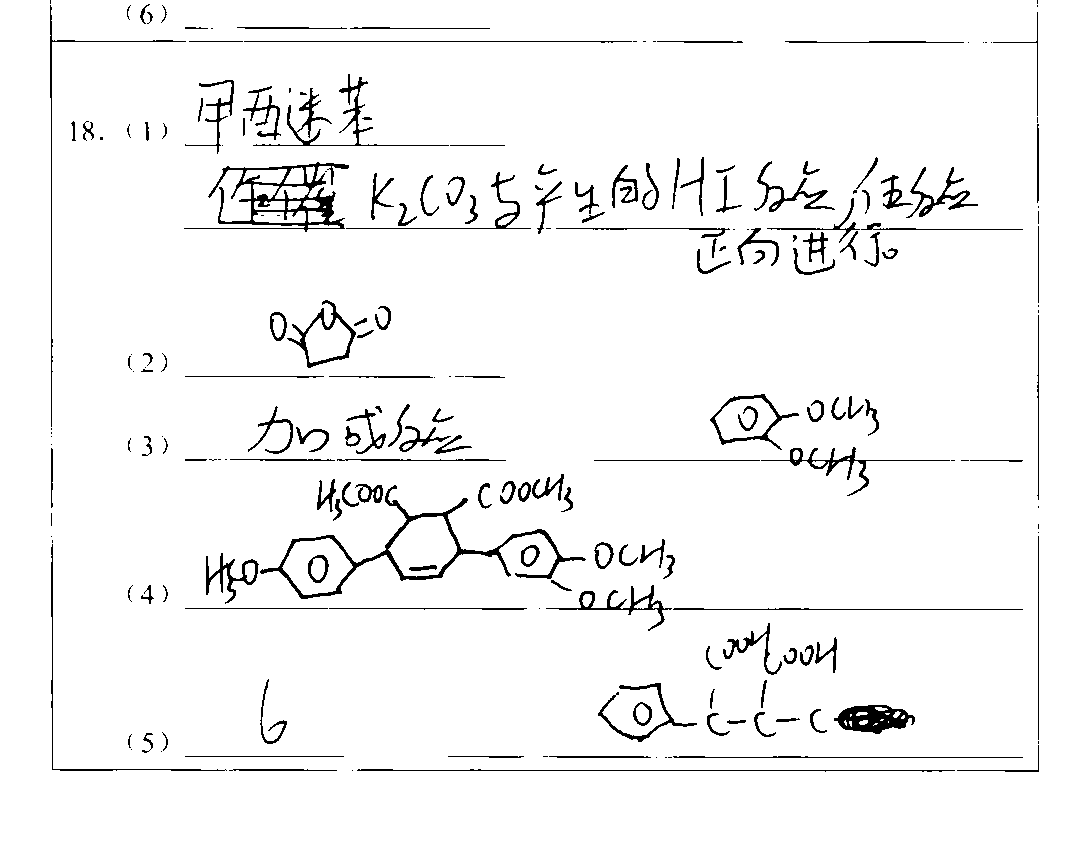 (6)
18. (1) 甲酉迷苯
K₂CO₃与产生的HI反应,使反应
正向进行。
O O =O
(2)
(3) 加成反应 OCH₃
OCH₃
H₃COOC COOCH₃
(4) H₃CO OCH₃
OCH₃
COOH COOH
(5) 6 C-C-C